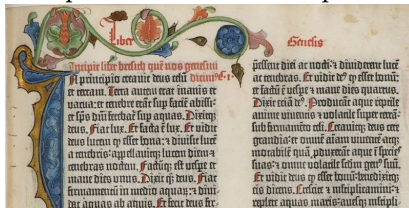 Liber Genesis
Incipit liber bresith quē nos genesim
In principio creauit deus celū dicimus
et terram. Terra autem erat inanis et
vacua: et tenebre erāt sup faciē abissi:
et sp̄s dn̄i ferebat̄ sup aquas. Dixitq;
deus. Fiat lux. Et facta ē lux. Et vidit
deus lucem ꝙ esset bona: ⁊ diuisit lucem
a tenebris: appellauitq; lucem diem ⁊
tenebras noctem. Factūq; est vespe et
mane dies unus. Dixit qq; deus. Fiat
firmamentū in medio aquarū: ⁊ diui-
dat aquas ab aquis. Et fecit deus fir-
pēssent diei ac nocti: ⁊ diuiderent lucē
ac tenebras. Et vidit de⁹ ꝙ esset bonū:
et factū ē vespe ⁊ mane dies quartus.
Dixit eciā de⁹. Producāt aque reptile
anime viuentis et volatile super terrā:
sub firmamēto celi. Creauitq; deus cete
grandia: et omnē animā viuentē atq;
motabilē quā produxerāt aque ī species
suas: ⁊ omne volatile scd̄m gen⁹ suū.
Et vidit deus ꝙ esset bonū: benedixitq;
eis dicens. Crescite et multiplicamini: et
replete aquas maris: auesq; multipli-